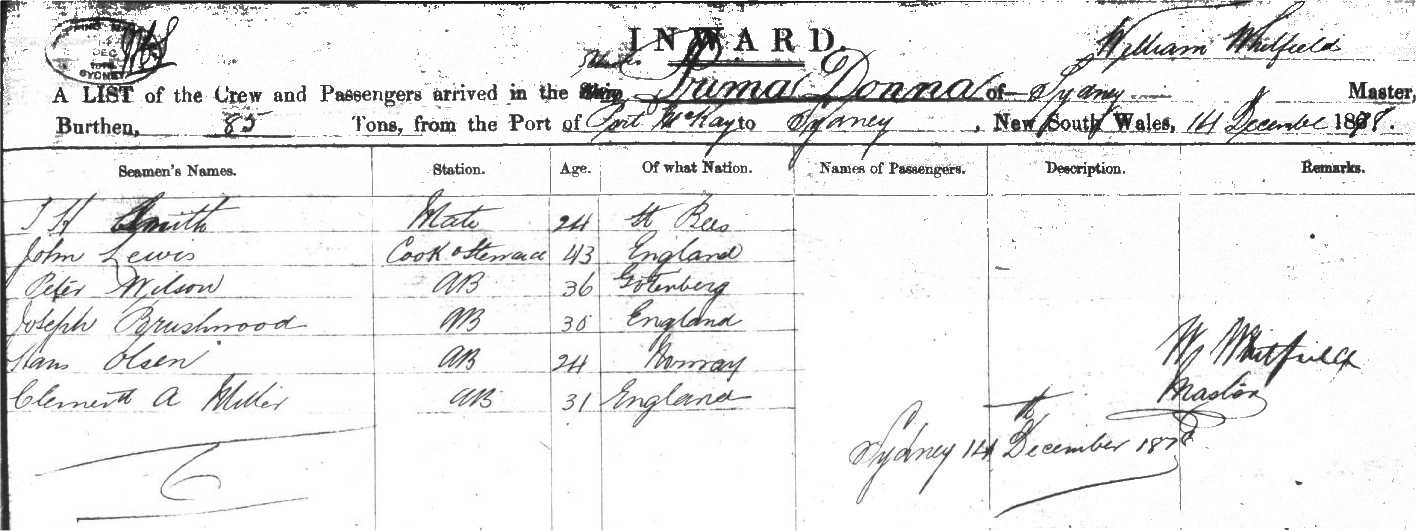 DEC
SYDNEY
INWARD.
William Whitfield
A LIST of the Crew and Passengers arrived in the Ship Prima Donna of Sydney Master,
Burthen, 85 Tons, from the Port of Port McKay to Sydney, New South Wales, 14 December 1878.
Seamen's Names. Station. Age. Of what Nation. Names of Passengers. Description. Remarks.
J H Smith Mate 24 St Bees
John Lewis Cook & Steward 43 England
Peter Wilson AB 36 Gotenberg
Joseph Brushwood AB 30 England
Hans Olsen AB 24 Norway
Clement A Miller AB 31 England
W Whitfield
Master
Sydney 14th December 1878